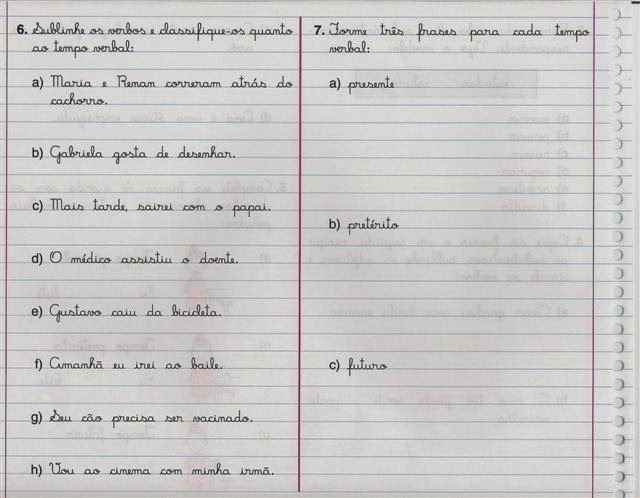 6. Sublinhe os verbos e classifique-os quanto
ao tempo verbal:
a) Maria e Renan correram atrás do
cachorro.
b) Gabriela gosta de desenhar.
c) Mais tarde, sairei com o papai.
d) O médico assistiu o doente.
e) Gustavo caiu da bicicleta.
f) Amanhã eu irei ao baile.
g) Seu cão precisa ser vacinado.
h) Vou ao cinema com minha irmã.
7. Forme três frases para cada tempo
verbal:
a) presente
b) pretérito
c) futuro